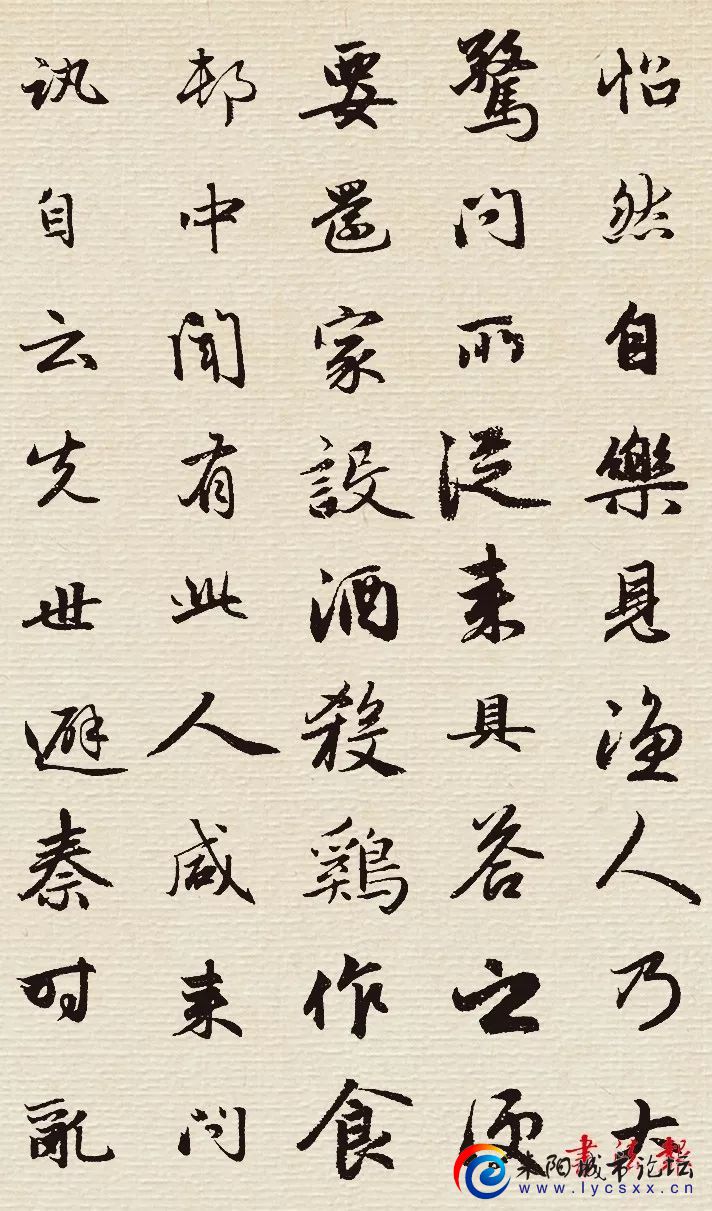 怡然自樂見漁人乃大
驚問所從来具答之便
要還家設酒殺鷄作食
邨中聞有此人咸来問
訊自云先世避秦時亂
耒阳城市论坛
www.lycsxx.cn